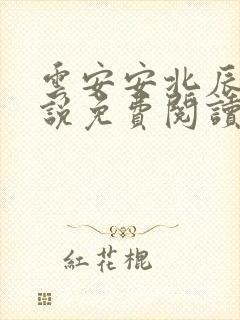 雲安安北辰
說免費閱讀
紅花棍